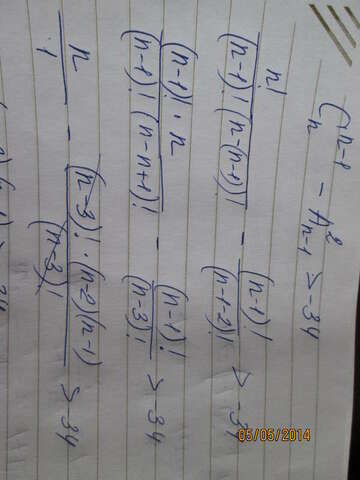 C_n^{n-1} - A_{n-1}^2 > -34
n! / (n-1)! (n-(n-1))! - (n-1)! / (n-1-2)! > -34
(n-1)! · n / (n-1)! (n-n+1)! - (n-1)! / (n-3)! > -34
n / 1 - (n-3)! · (n-2)(n-1) / (n-3)! > -34
05/05/2014